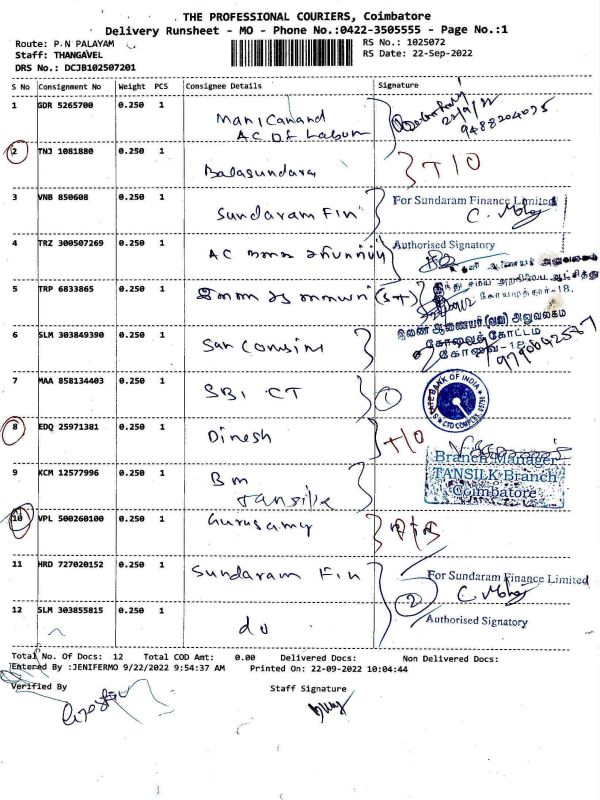 THE PROFESSIONAL COURIERS, Coimbatore
Delivery Runsheet - MO - Phone No.:0422-3505555 - Page No.:1
Route: P.N PALAYAM
Staff: THANGAVEL
DRS No.: DCJB102507201
RS No.: 1025072
RS Date: 22-Sep-2022
S No Consignment No Weight PCS Consignee Details Signature
1 GDR 5265700 0.250 1 Manicanand
AC OF Labour
22/9/22
2 TNJ 1081880 0.250 1 Balasundara T/O
3 VNB 850608 0.250 1 Sundaram Fin For Sundaram Finance Limited
Authorised Signatory
4 TRZ 300507269 0.250 1 AC
5 TRP 6833865 0.250 1
இந்து சமய அறநிலைய ஆட்சித்து
கோயமுத்தூர்-18.
6 SLM 303849390 0.250 1 San Consins
இணை ஆணையர் (வவ) அலுவலகம்
கோவைக் கோட்டம்
கோவை-18
7 MAA 858134403 0.250 1 SBI CT 1
STATE BANK OF INDIA
8 EDQ 25971381 0.250 1 Dinesh T/O
9 KCM 12577996 0.250 1 BM
Tansilk
Branch Manager
TANSILK Branch
Coimbatore
10 VPL 500260100 0.250 1 Gurusamy
11 HRD 727020152 0.250 1 Sundaram Fin 2 For Sundaram Finance Limited
12 SLM 303855815 0.250 1 do Authorised Signatory
Total No. Of Docs: 12 Total COD Amt: 0.00 Delivered Docs: Non Delivered Docs:
Entered By :JENIFERMO 9/22/2022 9:54:37 AM Printed On: 22-09-2022 10:04:44
Verified By Staff Signature